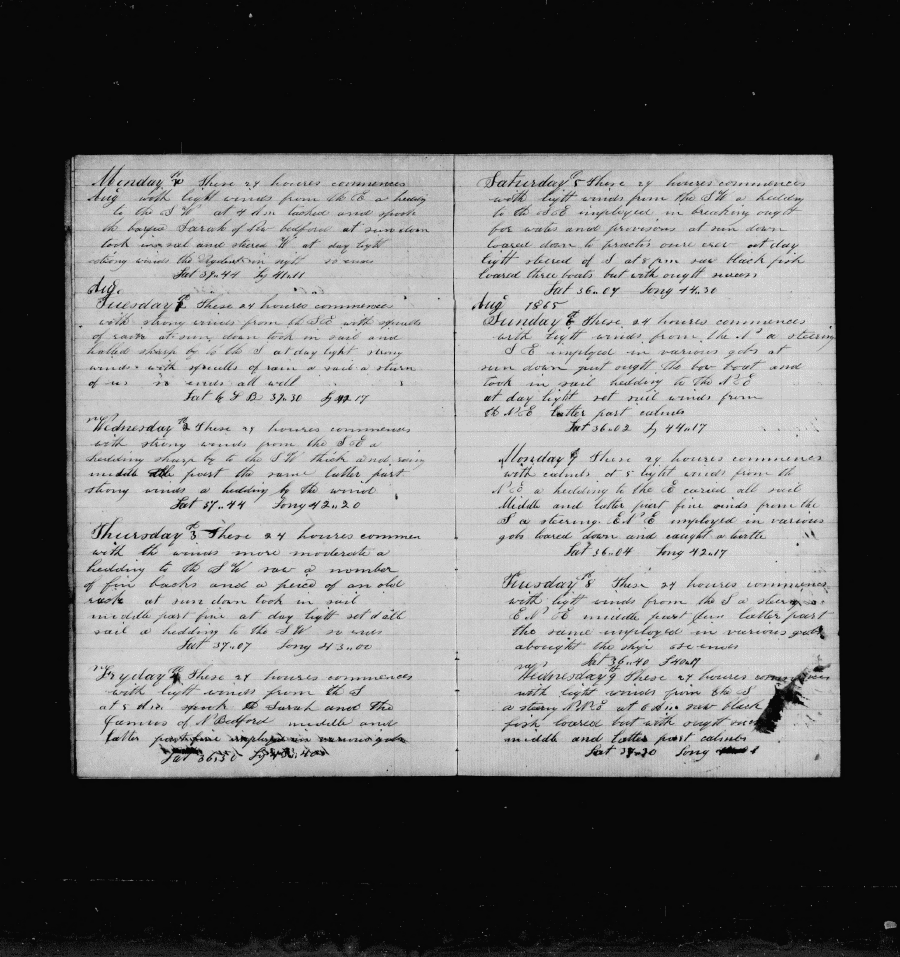 Monday These 24 houres commences
Aug with light winds from the E a hedding
to the S W at 4 d m tacked and spoke
the barque Sarah of New bedford at sun down
took in sail and stered W at day light
strong winds so ends
Lat 37.44 Lg 41.11
Aug
Tuesday 1 These 24 houres commences
with strong winds from the S E with squals
of rain at sun down took in sail and
halled sharp by to the S at day light strong
winds with squalls of rain a sail a stern
of us so ends all well
Lat by D R 37.30 Lg 42.17
Wednesday 2 These 24 houres commences
with strong winds from the S E a
hedding sharp by to the S W thick and rainy
middle part the same latter part
strong winds a hedding by the wind
Lat 37.44 Long 42.20
Thursday 3 These 24 houres commen
with the winds more moderate a
hedding to the S W saw a number
of fin backs and a peice of an old
at sun dan took in sail
middle part fine at day light set all
sail a hedding to the S W so ends
Lat 37.07 Long 43.00
Fryday 4 These 24 houres commences
with light winds from the S
at 5 spoke the Sarah and the
of N Bedford middle and
latter part fine imployed in various gobs
Lat 36.50 Lg
Saturday 5 These 24 houres commences
with light winds from the S W a hedding
to the S E imployed in breaking ought
for water and provisons at sun down
loared down to practis oure crew at day
light steered of S at 8 p m saw black fish
loared three boats but with ought sucess
Lat 36.07 Long 44.30
Aug 1865
Sunday 6 These 24 houres commences
with light winds from the N a steering
S E imployed in various gobs at
sun down put ought the bow boat and
took in sail hedding to the N E
at day light set sail winds from
the N E latter part calmes
Lat 36.02 Lg 44.17
Monday 7 These 24 houres commences
with calmes at 5 light winds from the
N E a hedding to the E caried all sail
Middle and latter part fine winds from the
S a steering E N E imployed in various
gobs loared down and caught a turtle
Lat 36.04 Long 42.17
Tuesday 8 These 24 houres commences
with light winds from the S a stering
E N E middle part fine latter part
the same imployed in various gobs
abought the ship so ends
Lat 36.40 L 40.17
Wednesday 9 These 24 houres
with light winds from the S
a stering N N E at 6 saw black
fish loared but with ought
middle and latter part calmes
Lat 37.30 Long